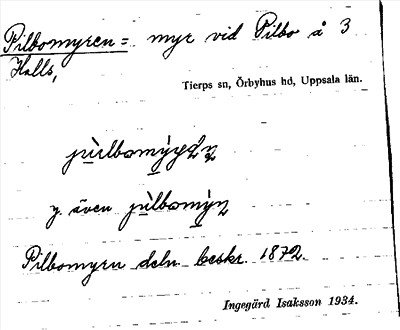 Pilbomyren = myr vid Pilbo å 3
Halls,
Tierps sn, Örbyhus hd, Uppsala län.
även
Pilbomyrn deln. beskr. 1872.
Ingegärd Isaksson 1934.